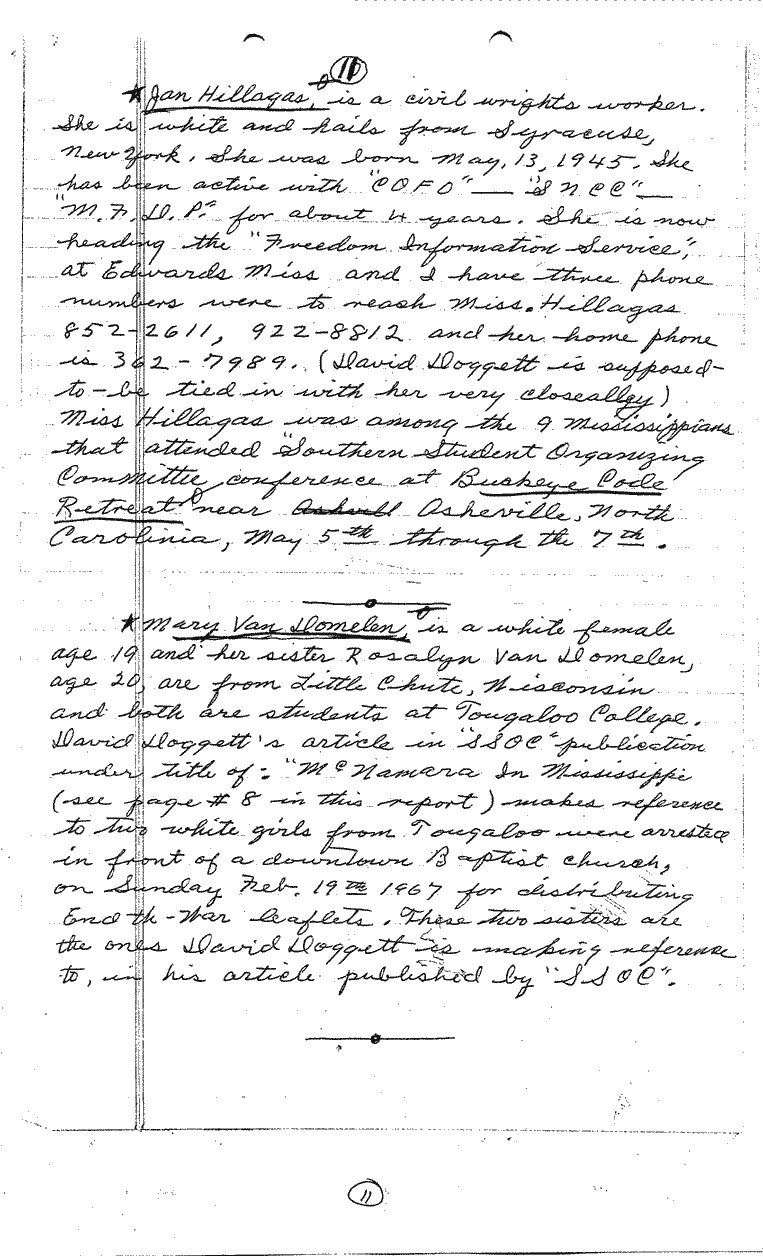 11
★ Jan Hillagas, is a civil wrights worker.
She is white and hails from Syracuse,
New York. She was born May, 13, 1945. She
has been active with "COFO" — "SNCC" —
"M.F.D.P." for about 4 years. She is now
heading the "Freedom Information Service",
at Edwards Miss and I have three phone
numbers were to reach Miss. Hillagas
852-2611, 922-8812 and her home phone
is 362-7989. (David Doggett is supposed-
to-be tied in with her very closeallgy)
Miss Hillagas was among the 9 Mississippians
that attended "Southern Student Organizing
Committie, conference at Buckeye Code
Retreat" near Asheville, North
Carolinia, May 5th through the 7th.
★ Mary Van Domelen, is a white female
age 19 and her sister Rosalyn Van Domelen,
age 20, are from Little Chute, Wisconsin
and both are students at Tougaloo College.
David Doggett's article in "SSOC" publication
under title of: "McNamara In Mississippi
(see page # 8 in this report) makes reference
to two white girls from Tougaloo were arrested
in front of a downtown Baptist church,
on Sunday Feb. 19th 1967 for distributing
End th-War leaflets. These two sisters are
the ones David Doggett is making reference
to, in his article published by "SSOC".
11